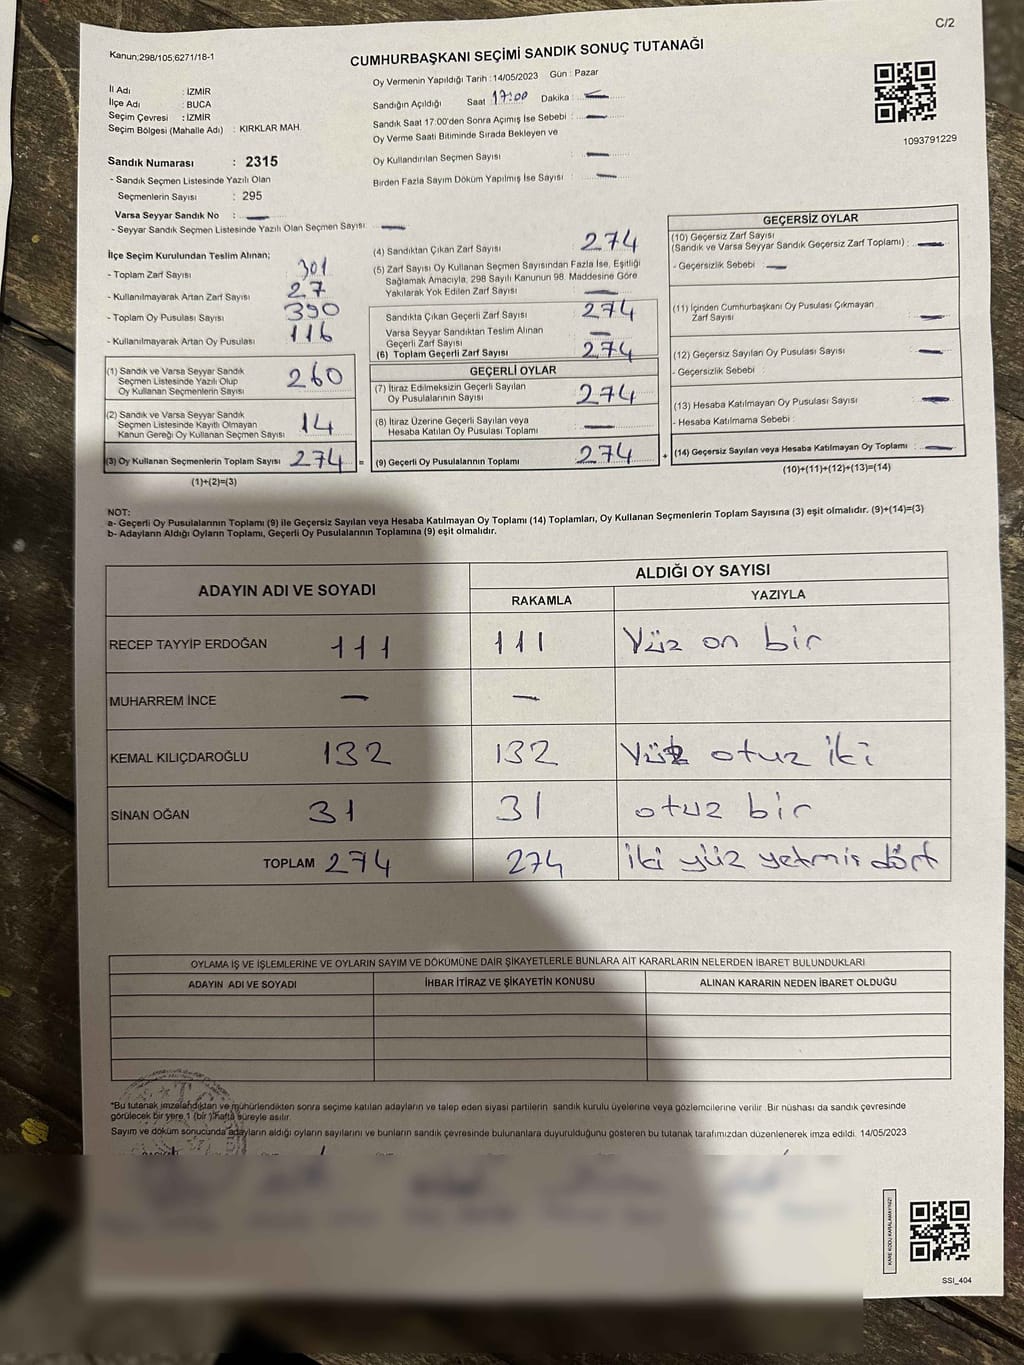 C/2
Kanun;298/105;6271/18-1
CUMHURBAŞKANI SEÇİMİ SANDIK SONUÇ TUTANAĞI
İl Adı : İZMİR
İlçe Adı : BUCA
Seçim Çevresi : İZMİR
Seçim Bölgesi (Mahalle Adı) : KIRKLAR MAH.
Sandık Numarası : 2315
- Sandık Seçmen Listesinde Yazılı Olan
Seçmenlerin Sayısı : 295
Varsa Seyyar Sandık No : —
- Seyyar Sandık Seçmen Listesinde Yazılı Olan Seçmen Sayısı: —
Oy Vermenin Yapıldığı Tarih : 14/05/2023 Gün : Pazar
Sandığın Açıldığı Saat 17:00 Dakika : —
Sandık Saat 17:00'den Sonra Açımış İse Sebebi : —
Oy Verme Saati Bitiminde Sırada Bekleyen ve
Oy Kullandırılan Seçmen Sayısı : —
Birden Fazla Sayım Döküm Yapılmış İse Sayısı : —
1093791229
İlçe Seçim Kurulundan Teslim Alınan;
- Toplam Zarf Sayısı 301
- Kullanılmayarak Artan Zarf Sayısı 27
- Toplam Oy Pusulası Sayısı 390
- Kullanılmayarak Artan Oy Pusulası 116
(1) Sandık ve Varsa Seyyar Sandık
Seçmen Listesinde Yazılı Olup
Oy Kullanan Seçmenlerin Sayısı 260
(2) Sandık ve Varsa Seyyar Sandık
Seçmen Listesinde Kayıtlı Olmayan
Kanun Gereği Oy Kullanan Seçmen Sayısı 14
(3) Oy Kullanan Seçmenlerin Toplam Sayısı 274 =
(1)+(2)=(3)
(4) Sandıktan Çıkan Zarf Sayısı 274
(5) Zarf Sayısı Oy Kullanan Seçmen Sayısından Fazla İse, Eşitliği
Sağlamak Amacıyla, 298 Sayılı Kanunun 98. Maddesine Göre
Yakılarak Yok Edilen Zarf Sayısı —
Sandıkta Çıkan Geçerli Zarf Sayısı 274
Varsa Seyyar Sandıktan Teslim Alınan
Geçerli Zarf Sayısı —
(6) Toplam Geçerli Zarf Sayısı 274
GEÇERLİ OYLAR
(7) İtiraz Edilmeksizin Geçerli Sayılan
Oy Pusulalarının Sayısı 274
(8) İtiraz Üzerine Geçerli Sayılan veya
Hesaba Katılan Oy Pusulası Toplamı —
(9) Geçerli Oy Pusulalarının Toplamı 274 +
GEÇERSİZ OYLAR
(10) Geçersiz Zarf Sayısı
(Sandık ve Varsa Seyyar Sandık Geçersiz Zarf Toplamı) : —
- Geçersizlik Sebebi : —
(11) İçinden Cumhurbaşkanı Oy Pusulası Çıkmayan
Zarf Sayısı —
(12) Geçersiz Sayılan Oy Pusulası Sayısı —
- Geçersizlik Sebebi :
(13) Hesaba Katılmayan Oy Pusulası Sayısı —
- Hesaba Katılmama Sebebi :
(14) Geçersiz Sayılan veya Hesaba Katılmayan Oy Toplamı : —
(10)+(11)+(12)+(13)=(14)
NOT:
a- Geçerli Oy Pusulalarının Toplamı (9) ile Geçersiz Sayılan veya Hesaba Katılmayan Oy Toplamı (14) Toplamları, Oy Kullanan Seçmenlerin Toplam Sayısına (3) eşit olmalıdır. (9)+(14)=(3)
b- Adayların Aldığı Oyların Toplamı, Geçerli Oy Pusulalarının Toplamına (9) eşit olmalıdır.
ADAYIN ADI VE SOYADI ALDIĞI OY SAYISI
RAKAMLA YAZIYLA
RECEP TAYYİP ERDOĞAN 111 111 Yüz on bir
MUHARREM İNCE — —
KEMAL KILIÇDAROĞLU 132 132 Yüz otuz iki
SİNAN OĞAN 31 31 otuz bir
TOPLAM 274 274 iki yüz yetmiş dört
OYLAMA İŞ VE İŞLEMLERİNE VE OYLARIN SAYIM VE DÖKÜMÜNE DAİR ŞİKAYETLERLE BUNLARA AİT KARARLARIN NELERDEN İBARET BULUNDUKLARI
ADAYIN ADI VE SOYADI İHBAR İTİRAZ VE ŞİKAYETİN KONUSU ALINAN KARARIN NEDEN İBARET OLDUĞU
*Bu tutanak imzalandıktan ve mühürlendikten sonra seçime katılan adayların ve talep eden siyasi partilerin sandık kurulu üyelerine veya gözlemcilerine verilir. Bir nüshası da sandık çevresinde
görülecek bir yere 1 (bir) hafta süreyle asılır.
Sayım ve döküm sonucunda adayların aldığı oyların sayılarını ve bunların sandık çevresinde bulunanlara duyurulduğunu gösteren bu tutanak tarafımızdan düzenlenerek imza edildi. 14/05/2023
KARE KODU KARALAMAYINIZ!
SSI_404